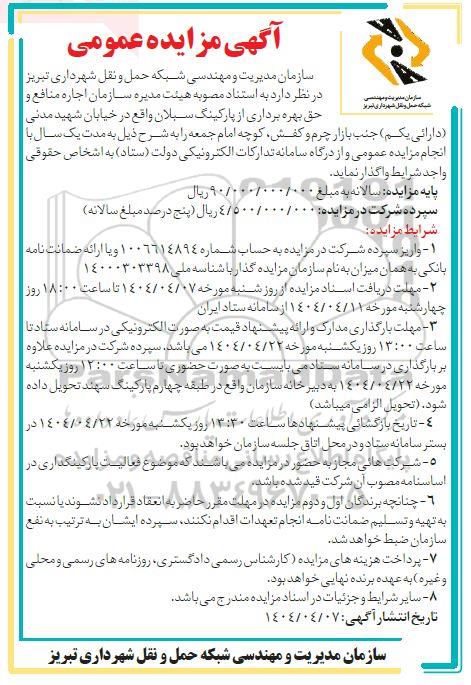 آگهی مزایده عمومی
سازمان مدیریت و مهندسی
شبکه حمل و نقل شهرداری تبریز
سازمان مدیریت و مهندسی شبکه حمل و نقل شهرداری تبریز
در نظر دارد به استناد مصوبه هیئت مدیره سازمان اجاره منافع و
حق بهره برداری از پارکینگ سبلان واقع در خیابان شهید مدنی
(دارائی یکم) جنب بازار چرم و کفش، کوچه امام جمعه را به شرح ذیل به مدت یک سال با
انجام مزایده عمومی و از درگاه سامانه تدارکات الکترونیکی دولت (ستاد) به اشخاص حقوقی
واجد شرایط واگذار نماید.
پایه مزایده: سالانه به مبلغ ۹۰/۰۰۰/۰۰۰/۰۰۰ ریال
سپرده شرکت در مزایده: ۴/۵۰۰/۰۰۰/۰۰۰ ریال (پنج درصد مبلغ سالانه)
شرایط مزایده:
۱- واریز سپرده شرکت در مزایده به حساب شماره ۱۰۰۶۶۱۴۸۹۴ و یا ارائه ضمانت نامه
بانکی به همان میزان به نام سازمان مزایده گذار با شناسه ملی ۱۴۰۰۰۳۰۳۳۹۸
۲- مهلت دریافت اسناد مزایده از روز شنبه مورخه ۱۴۰۴/۰۴/۰۷ تا ساعت ۱۸:۰۰ روز
چهارشنبه مورخه ۱۴۰۴/۰۴/۱۱ از سامانه ستاد ایران
۳- مهلت بارگذاری مدارک و ارائه پیشنهاد قیمت به صورت الکترونیکی در سامانه ستاد تا
ساعت ۱۳:۰۰ روز یکشنبه مورخه ۱۴۰۴/۰۴/۲۲ می باشد. سپرده شرکت در مزایده علاوه
بر بارگذاری در سامانه ستاد می بایست به صورت حضوری تا ساعت ۱۲:۰۰ روز یکشنبه
مورخه ۱۴۰۴/۰۴/۲۲ به دبیرخانه سازمان واقع در طبقه چهارم پارکینگ سهند تحویل داده
شود. (تحویل الزامی میباشد)
۴- تاریخ بازگشائی پیشنهادها ساعت ۱۳:۳۰ روز یکشنبه مورخه ۱۴۰۴/۰۴/۲۲ در
بستر سامانه ستاد و در محل اتاق جلسه سازمان خواهد بود.
۵- شرکت هائی مجاز به حضور در مزایده می باشند که موضوع فعالیت پارکینگداری در
اساسنامه مصوب آن شرکت قید شده باشد.
۶- چنانچه برندگان اول و دوم مزایده در مهلت مقرر حاضر به انعقاد قرارداد نشوند یا نسبت
به تهیه و تسلیم ضمانت نامه انجام تعهدات اقدام نکنند، سپرده ایشان به ترتیب به نفع
سازمان ضبط خواهد شد.
۷- پرداخت هزینه های مزایده (کارشناس رسمی دادگستری، روزنامه های رسمی و محلی
و غیره) به عهده برنده نهایی خواهد بود.
۸- سایر شرایط و جزئیات در اسناد مزایده مندرج می باشد.
تاریخ انتشار آگهی: ۱۴۰۴/۰۴/۰۷
سازمان مدیریت و مهندسی شبکه حمل و نقل شهرداری تبریز